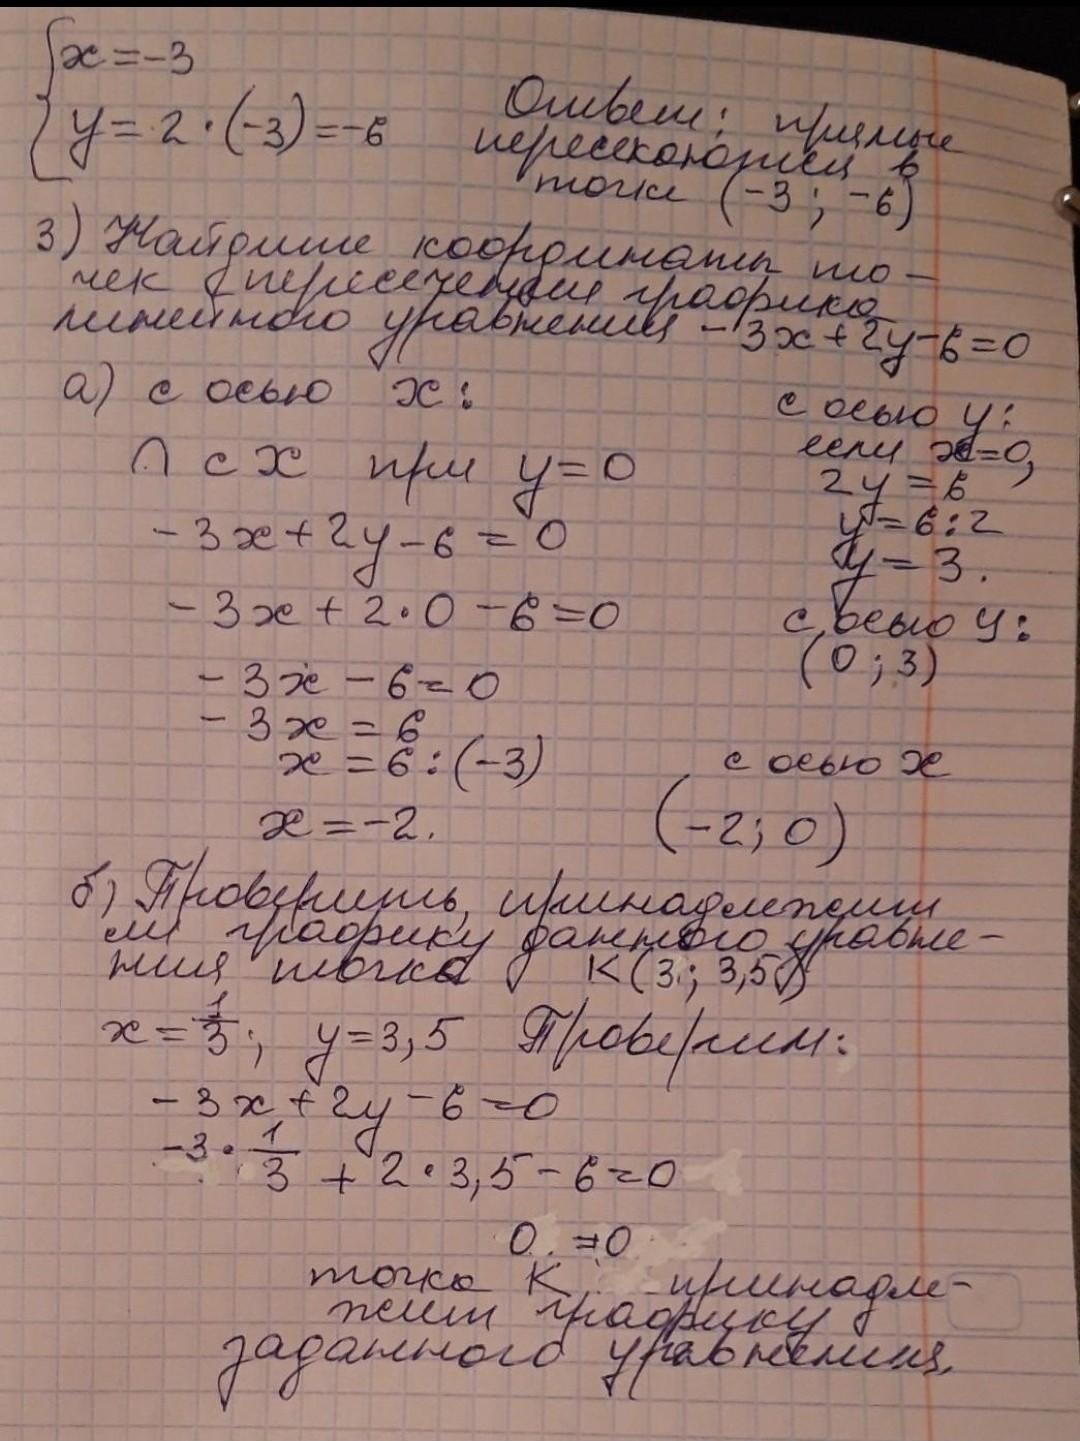 x = -3
y = 2 · (-3) = -6
Ответ: прямые
пересекаются в
точке (-3; -6)
3) Найдите координаты то-
чек пересечения графика
линейного уравнения -3x+2y-6=0
а) с осью x:
∩ с x при y=0
-3x+2y-6=0
-3x+2·0-6=0
-3x-6=0
-3x=6
x=6:(-3)
x=-2.
с осью y:
если x=0,
2y=6
y=6:2
y=3.
с осью y:
(0; 3)
с осью x
(-2; 0)
б) Проверить, принадлежит
ли графику данного уравне-
ния точка K(3; 3,5)
x=1/3; y=3,5 Проверим:
-3x+2y-6=0
-3·1/3+2·3,5-6=0
0=0
точка K принадле-
жит графику
заданного уравнения.